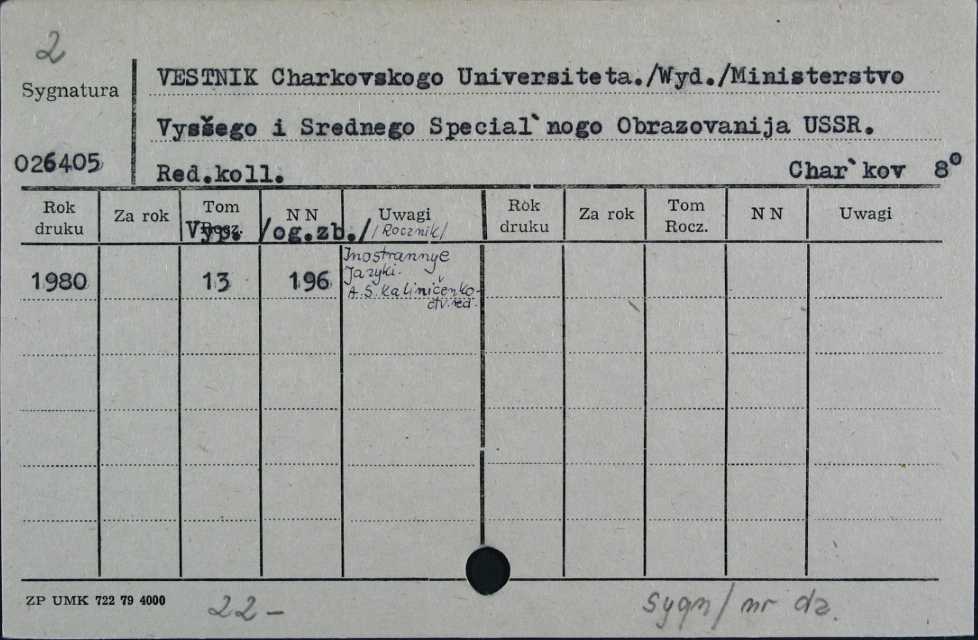 2
Sygnatura
VESTNIK Charkovskogo Universiteta./Wyd./Ministerstvo
Vysšego i Srednego Special`nogo Obrazovanija USSR.
026405
Red.koll. Char`kov 8°
Rok druku Za rok Tom Rocz. N N Uwagi Rok druku Za rok Tom Rocz. N N Uwagi
Vyp. /og.zb./ /Rocznik/
1980 13 196 Inostrannye
Jazyki.
A.S.Kaliničenko-
otv.red.
ZP UMK 722 79 4000
22-
sygn/ nr dz.